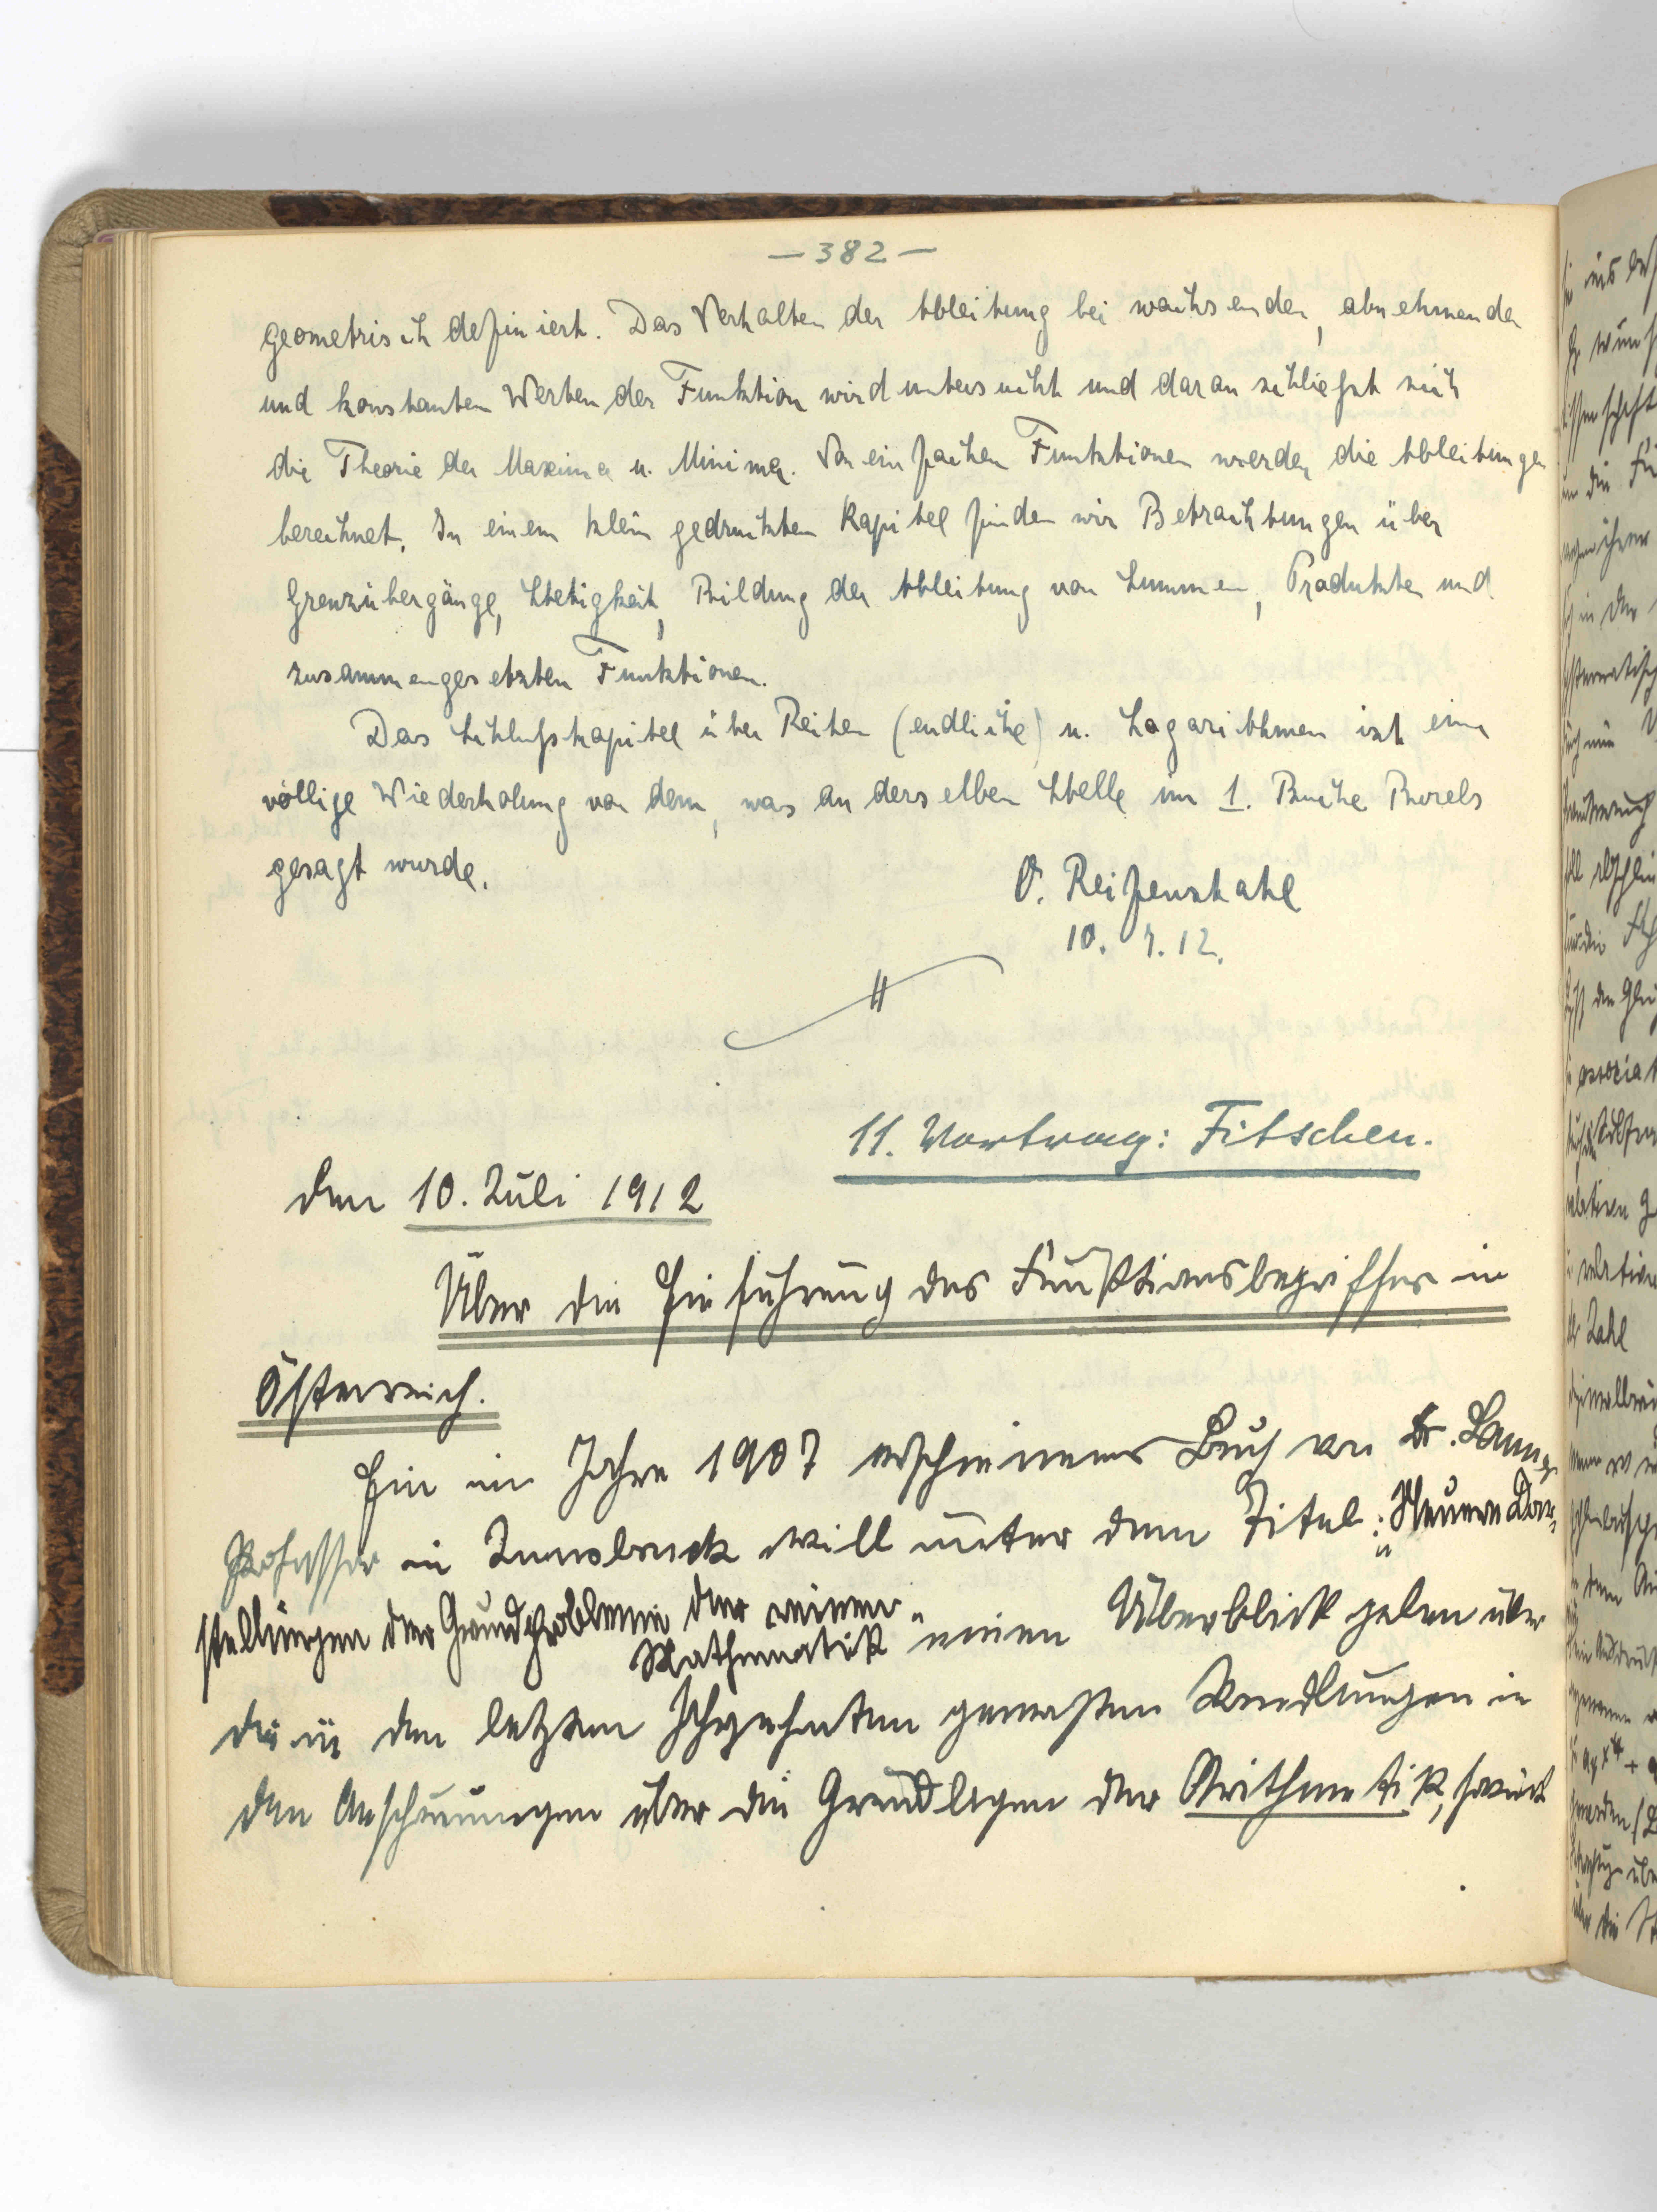 — 382 —
geometrisch definiert. Das Verhalten der Ableitung bei wachsenden, abnehmenden
und konstanten Werten der Funktion wird untersucht und daran schließt sich
die Theorie der Maxima u. Minima. Von einfachen Funktionen werden die Ableitungen
berechnet. In einem klein gedruckten Kapitel finden wir Betrachtungen über
Grenzübergänge, Stetigkeit, Bildung der Ableitung von Summen, Produkten und
zusammengesetzten Funktionen.
Das Schlußkapitel über Reihen (endliche) u. Logarithmen ist eine
völlige Wiederholung von dem, was an derselben Stelle im 1. Buche Borels
gesagt wurde.
O. Reifenstahl
10. 7. 12.
11. Vortrag: Fitschen.
den 10. Juli 1912
Über die Einführung des Funktionsbegriffes in
Österreich.
Ein im Jahre 1907 erschienenes Buch von Dr.
Professor in Innsbruck will unter dem Titel: „Neuere Dar-
stellungen der Grundprobleme der reinen
Mathematik" einen Überblick geben über
die in den letzten Jahrzehnten gemachten Wandlungen in
den Anschauungen über die Grundlagen der Arithmetik, sowie